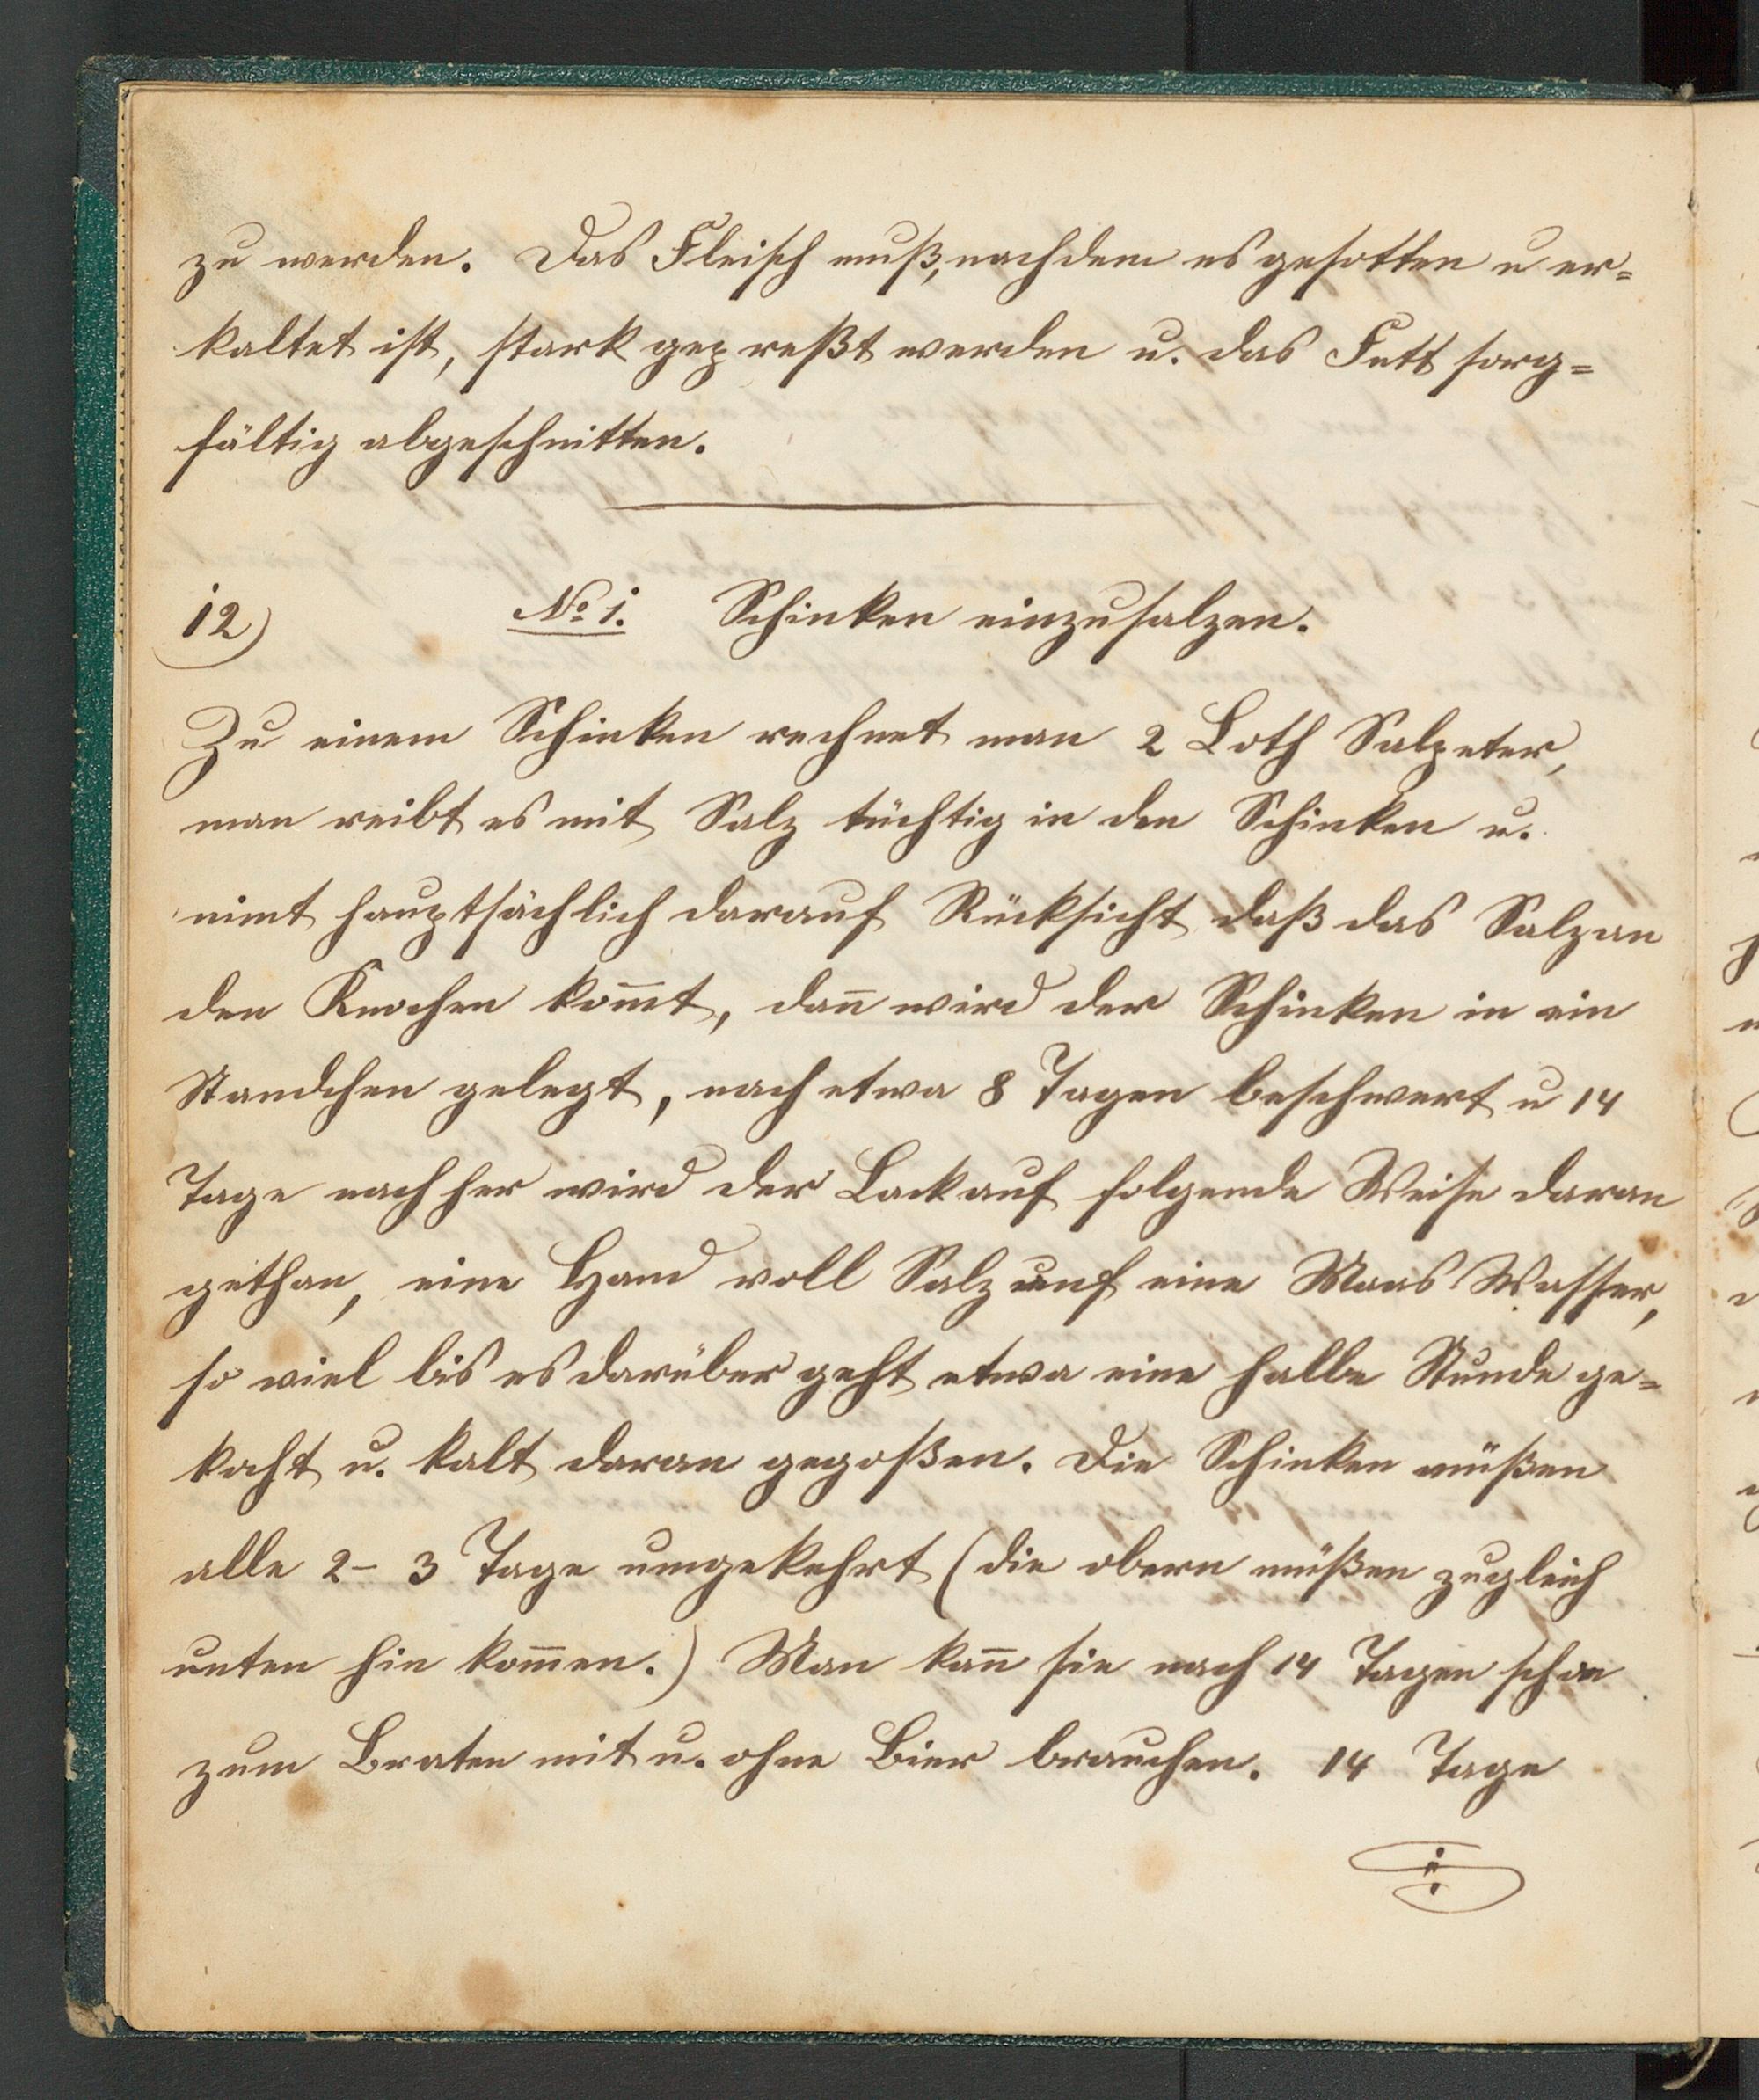 zu werden. Das Fleisch muß, nachdem es gesotten u er=
kaltet ist, stark gepreßt werden u. das Fett sorg=
fältig abgeschnitten.
12) No 1. Schinken einzusalzen.
Zu einem Schinken rechnet man 2 Loth Salpeter,
man reibt es mit Salz tüchtig in den Schinken u.
nimt hauptsächlich darauf Rücksicht daß das Salz an
den Knochen kom̄t, dan̄ wird der Schinken in ein
Standchen gelegt, nach etwa 8 Tagen beschwert u 14
Tage nachher wird der Lack auf folgende Weise daran
gethan, eine Hand voll Salz auf eine Maas Wasser,
so viel bis es darüber geht etwa eine halbe Stunde ge=
kocht u. kalt daran gegoßen. Die Schinken müßen
alle 2- 3 Tage umgekehrt (die obern müßen zugleich
unten hin kom̄en.) Man kan̄ sie nach 14 Tagen schon
zum Braten mit u. ohne Bier brauchen. 14 Tage